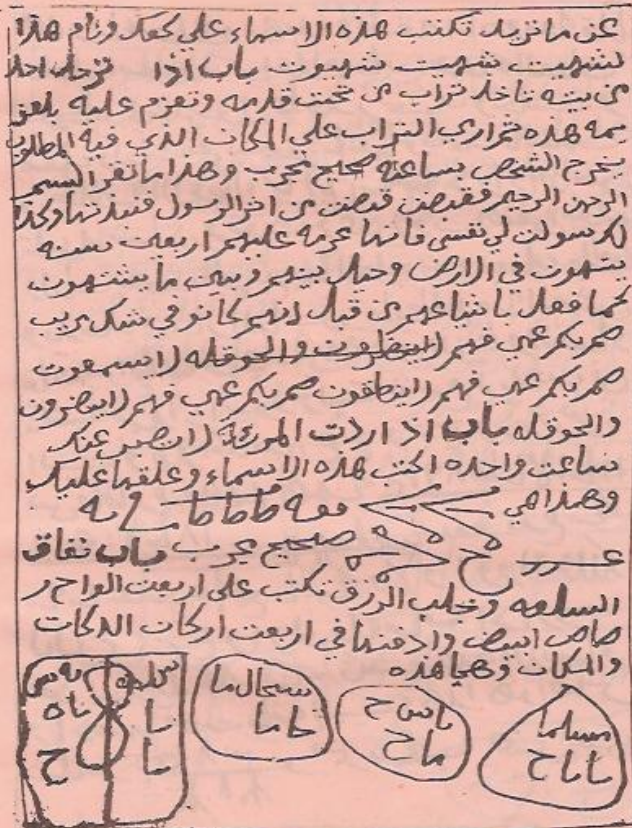 عن ما تريد تكتب هذه الاسماء علي كفك ونام هذا
شهيت شهيت شهيوت باب اذا تزحل احد
من بيته تاخذ تراب من تحت قدمه وتعزم عليه
يمه هذه ثم اري التراب علي المكان الذي فيه المطلوب
يخرج الشخص بساعته صحيح مجرب وهذا ما تقرا بسم
الرحمن الرحيم فقبضت قبضت من اثر الرسول فنبذتها وكذا
لك سولت لي نفسي فانها محرمه عليهم اربعين سنه
يتيهون في الارض وحيل بينهم وبين ما يشتهون
كما فعل باشياعهم من قبل انهم كانو في شك مريب
صم بكم عمي فهم لا والحوقله لا يسمعون
صم بكم عمي فهم لا ينطقون صم بكم عمي فهم لا يبصرون
والحوقله باب اذا اردت المرئة لا تصبر عنك
ساعت واحده اكتب هذه الاسماء وعلقها عليك
وهذا هي
صحيح مجرب باب نفاق
السلعه وجلب الرزق تكتب على اربعت الواح ر
صاص ابيض وادفنها في اربعت اركان الدكان
والمكان وهيا هذه